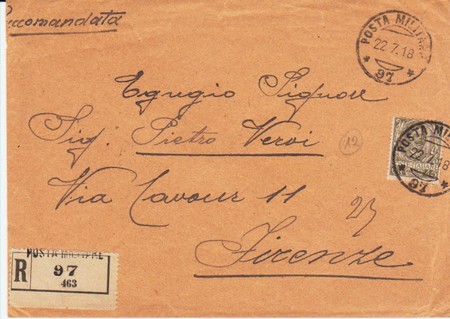 Raccomandata
POSTA MILITARE
22.7.18
* 97 *
Egregio Signore
Sig. Pietro Vervi
Via Cavour 11
Firenze
12
23
POSTA MILITARE
22.7.18
97 *
POSTA MILITARE
R 97
463